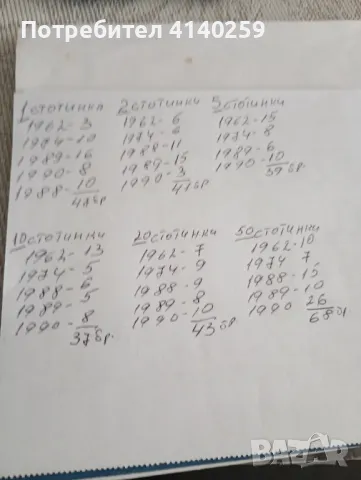 Потребител 4140259
1 стотинка
1962-3
1974-10
1989-16
1990-8
1988-10
47бр
2 стотинки
1962-6
1974-6
1988-11
1989-15
1990-3
41бр.
5 стотинки
1962-15
1974-8
1989-6
1990-10
39бр
10 стотинки
1962-13
1974-5
1988-6
1989-5
1990-8
37бр.
20 стотинки
1962-7
1974-9
1988-9
1989-8
1990-10
43бр
50 стотинки
1962-10
1974 7
1988-15
1989-10
1990 26
68
bazar